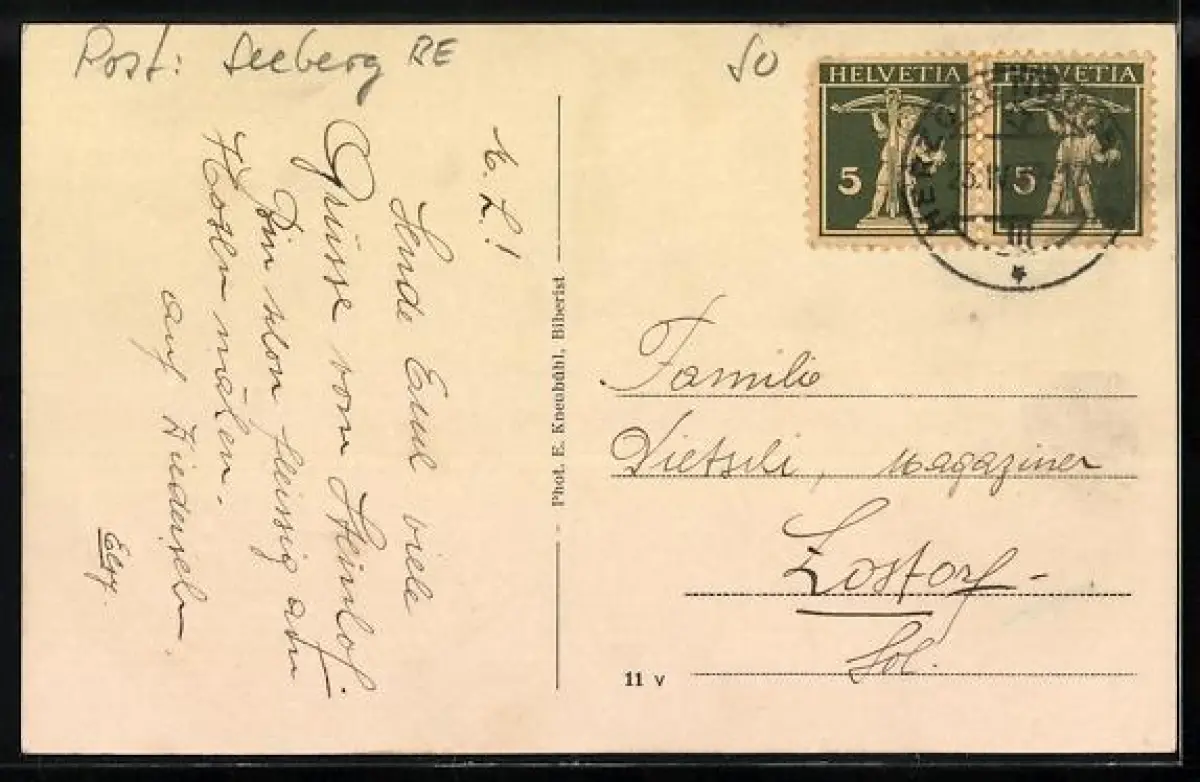 Post: Seeberg BE
SO
HELVETIA
5
HELVETIA
5
HERZOG
23. IV
M. L.!
Sende Euch viele
Grüsse vom Steinhof.
Bin schon fleissig am
Hosen nähen.
auf Wiedersehn.
Elsy.
Phot. E. Kneubühl, Biberist
Familie
Dietschi, Magaziner
Lostorf
Sol.
11 v